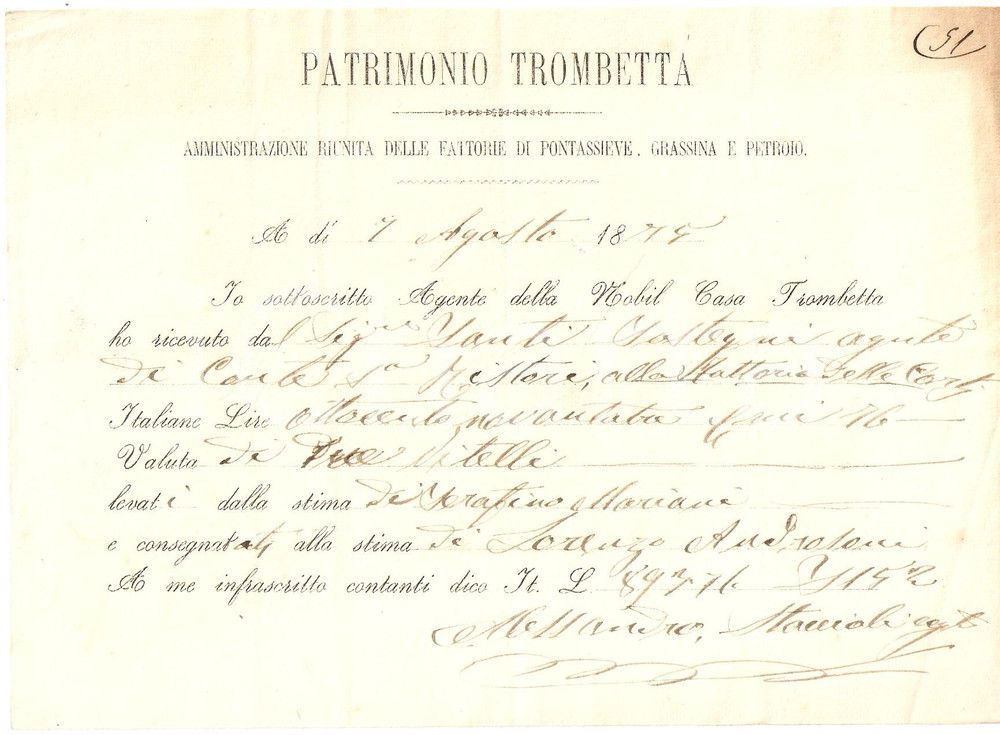 51
PATRIMONIO TROMBETTA
AMMINISTRAZIONE RIUNITA DELLE FATTORIE DI PONTASSIEVE, GRASSINA E PETROIO.
A dì 7 Agosto 1875
Io sottoscritto Agente della Nobil Casa Trombetta
ho ricevuto dal Sigre Santi Sostegni agente
di Conte alla Fattoria delle Corti
Italiane Lire ottocento novantatre 76
Valuta di Due Vitelli
levati dalla stima di Serafino Mariani
e consegnati alla stima di Lorenzo
A me infrascritto contanti dico It. L 893,76
Alessandro Staccioli agte